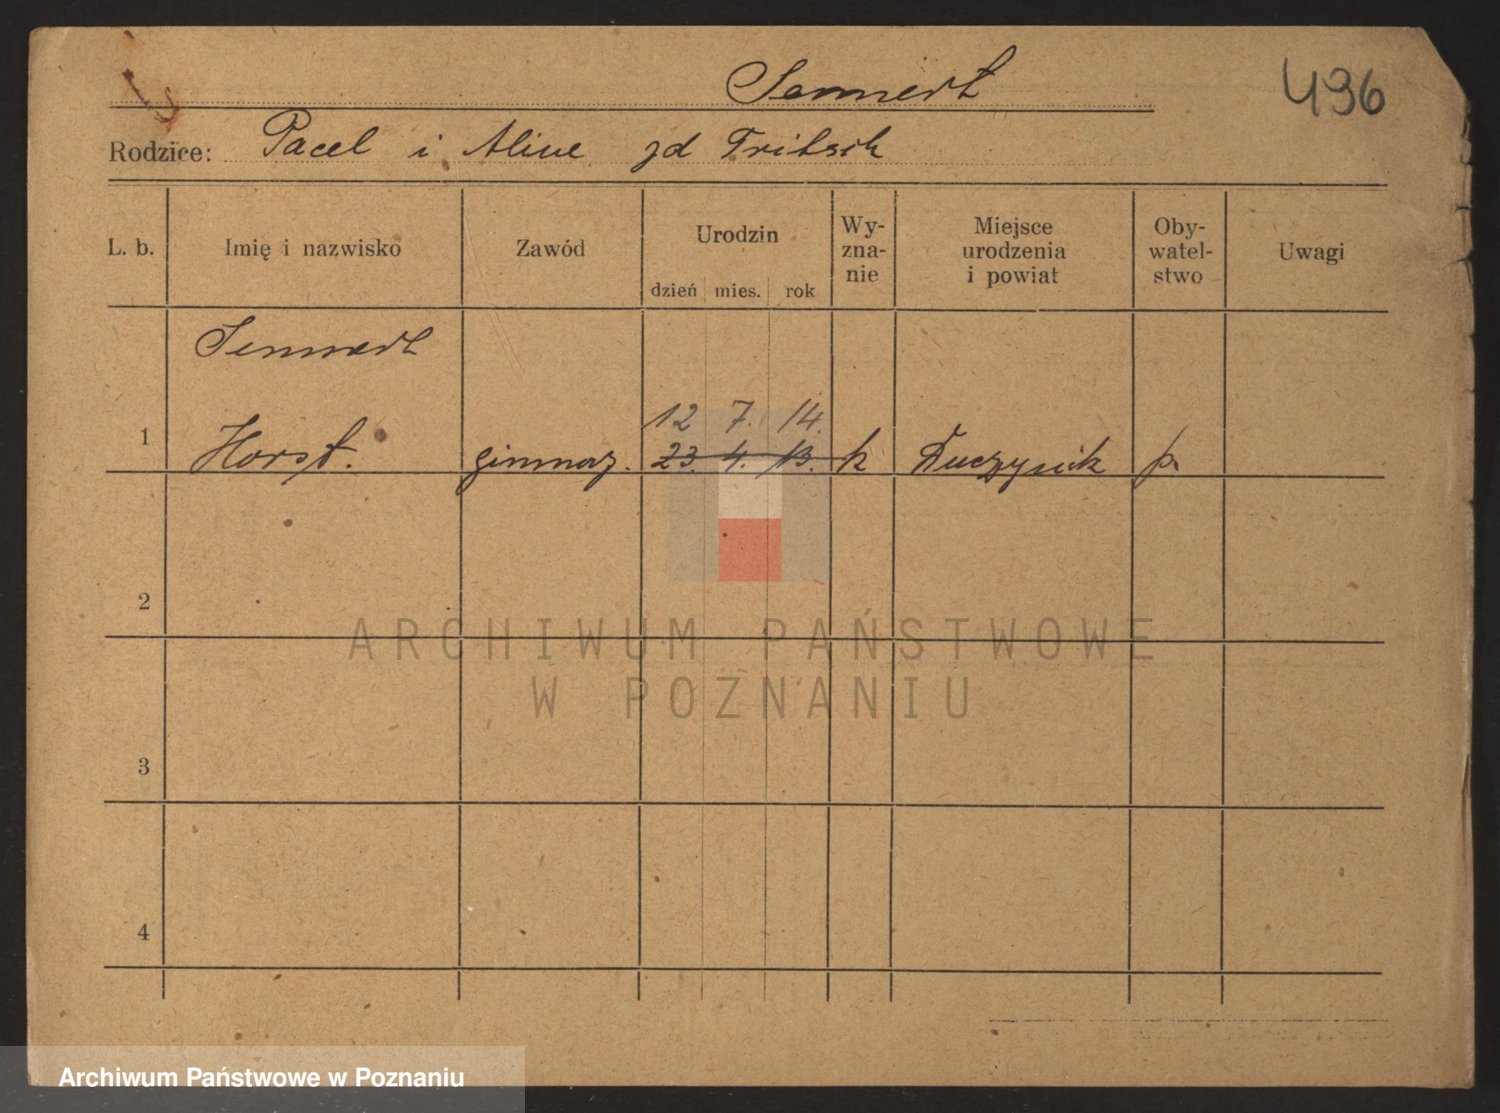 Sennert
496
Rodzice: Pacel i Aline zd Fritsch
L. b.
Imię i nazwisko
Zawód
Urodzin
dzień mies. rok
Wy-
zna-
nie
Miejsce
urodzenia
i powiat
Oby-
watel-
stwo
Uwagi
Sennert
12 7. 14.
1 Horst. gimnaz. 23. 4. 13. k p.
2
3
4
ARCHIWUM PAŃSTWOWE
W POZNANIU
Archiwum Państwowe w Poznaniu